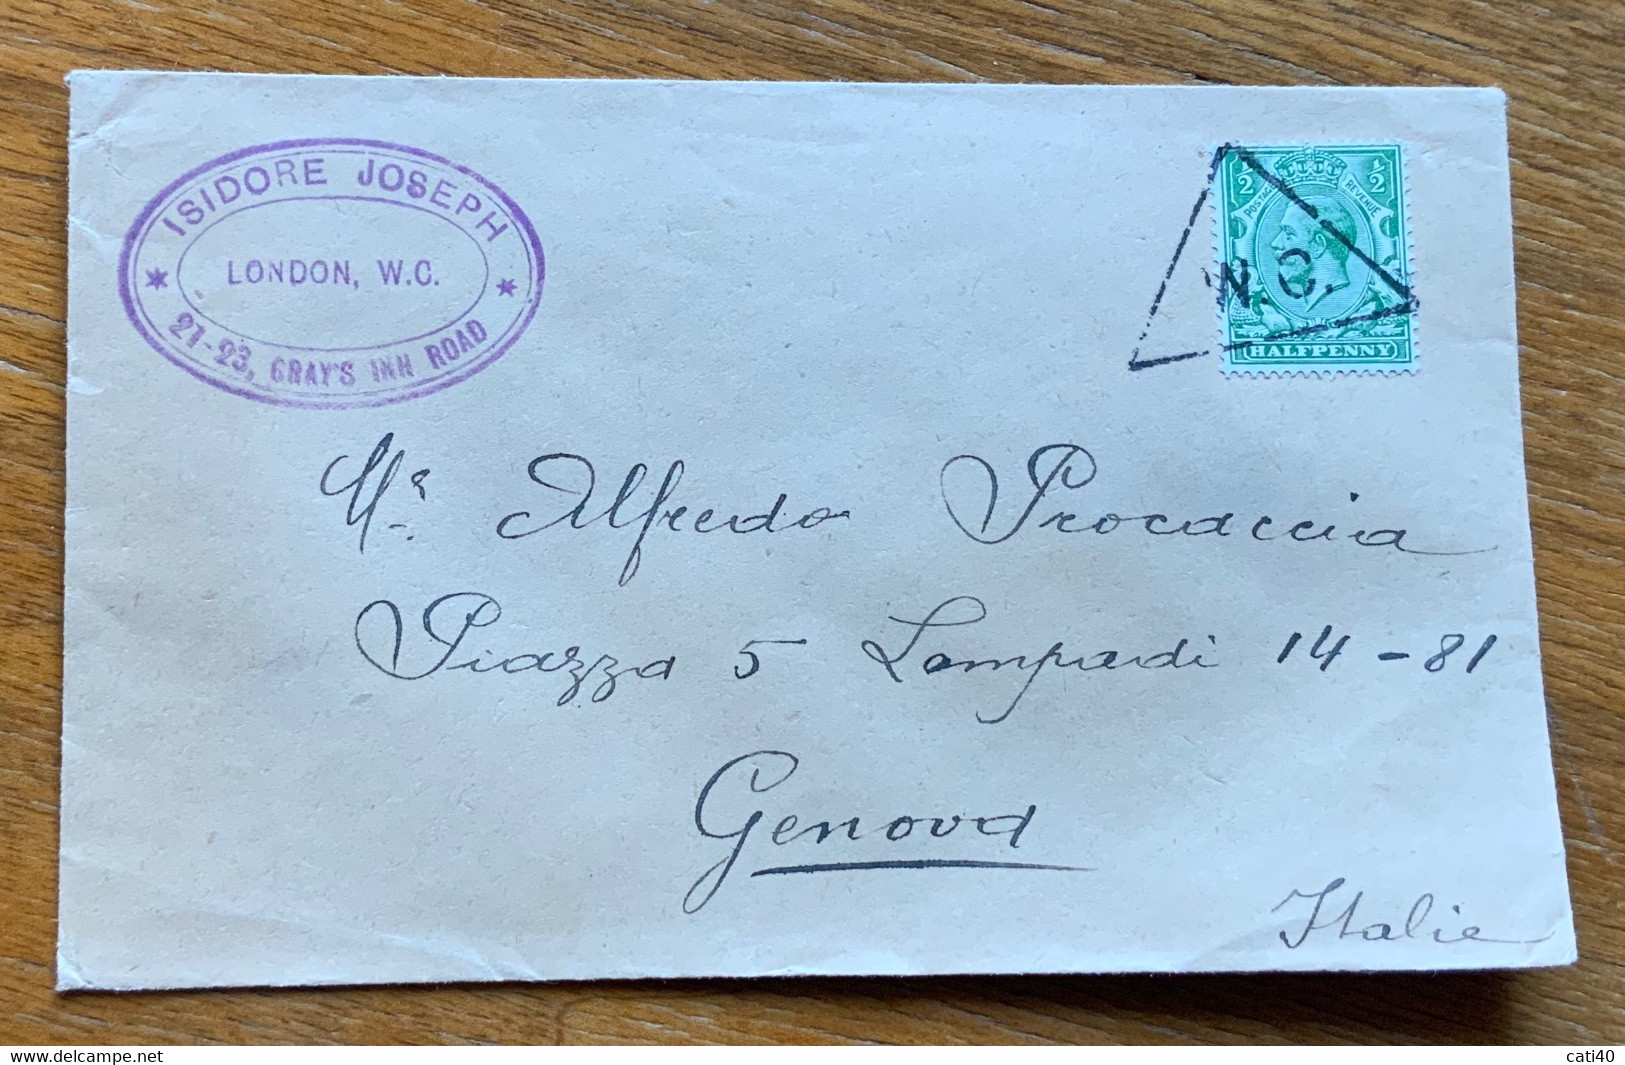 ISIDORE JOSEPH
LONDON, W.C.
21-23, GRAY'S INN ROAD
1/2 1/2
POSTAGE REVENUE
W.C.
HALFPENNY
Mr. Alfredo Procaccia
Piazza 5 Lampardi 14-81
Genova
Italie
delcampe.net
cati40